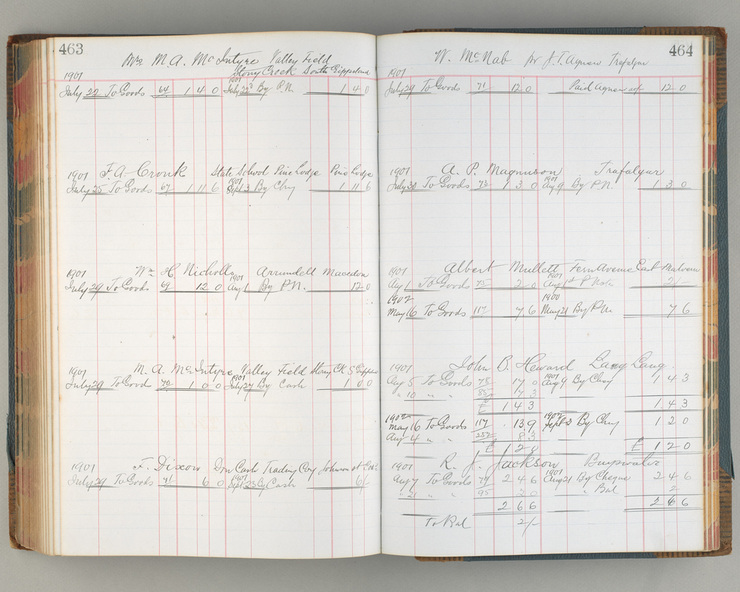 463
Mrs M. A. McIntyre Valley Field
Stony Creek South Gippsland
1901 1901
July 22 To Goods 64 1 4 0 July 22 By P.N. 1 4 0
1901 F. A. Cronk State School Pine Lodge Pine Lodge
1901
July 25 To Goods 67 1 11 6 Sept 3 By Chq 1 11 6
1901 Wm H. Nicholls Arrundell Macedon
1901
July 29 To Goods 69 12 0 Aug 1 By P.N. 12 0
1901 M. A. McIntyre Valley Field Stony Ck S. Gipps
1901
July 29 To Goods 70 1 0 0 July 27 By Cash 1 0 0
1901 F. Dixon Trading Coy Johnson St
1901
July 29 To Goods 71 6 0 Sept 25 By Cash 6/-
464
W. McNab Pr J. T. Agnew Trafalgar
1901
July 29 To Goods 71 12 0 Paid Agnew a/c 12 0
1901 A. P. Magnuson Trafalgar
1901
July 30 To Goods 72 1 3 0 Aug 9 By P.N. 1 3 0
1901 Albert Mullett Fern Avenue East Malvern
1901
Aug 1 To Goods 72 2 0 Aug 1st P Note 2/-
1902 1900
May 16 To Goods 117 7 6 May 21 By P.N. 7 6
1901 John B. Heward Lang Lang
1901
Aug 5 To Goods 75 17 0 Aug 9 By Chq 1 4 3
" 10 " " 7 3
£ 1 4 3 1 4 3
1902 1902
May 16 To Goods 117 13 9 Sept 3 By Chq 1 2 0
Aug 4 " " 252 8 3
£ 1 2 0 £ 1 2 0
1901 R. J. Jackson Bayswater
1901
Aug 7 To Goods 79 2 4 6 Aug 21 By Cheque 2 4 6
" 21 " " 95 2 0 " Bal 2
2 6 6 2 6 6
To Bal 2/-